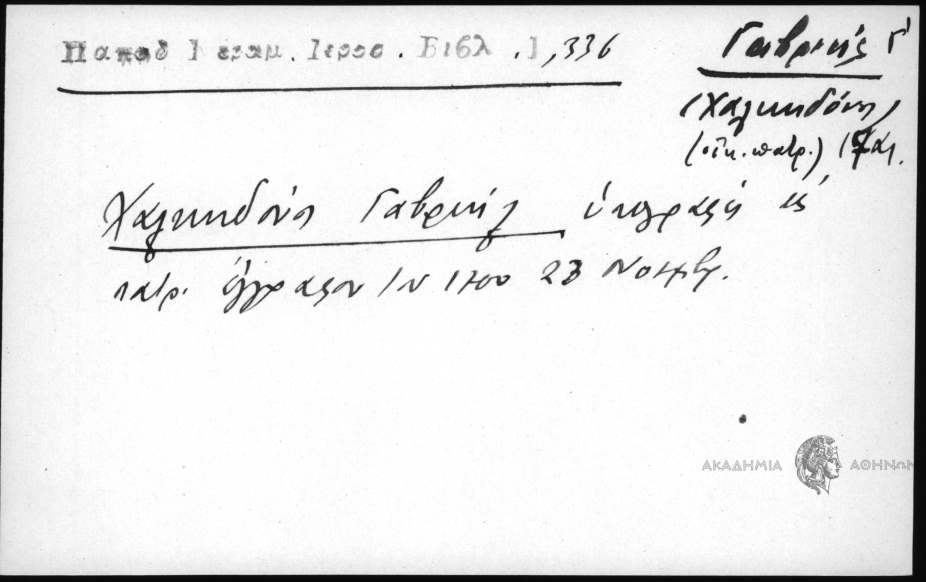 Παπαδ Κεραμ. Ιεροσ. Βιβλ. 1,336
Γαβριήλ Γ'
(Χαλκηδόνος)
(οἰκ. πατρ.) 17 αι.
Χαλκηδόνος Γαβριήλ ὑπογραφή εἰς
πατρ. ἔγγραφον τοῦ 1700 23 Νοεμβρ.
ΑΚΑΔΗΜΙΑ ΑΘΗΝΩΝ